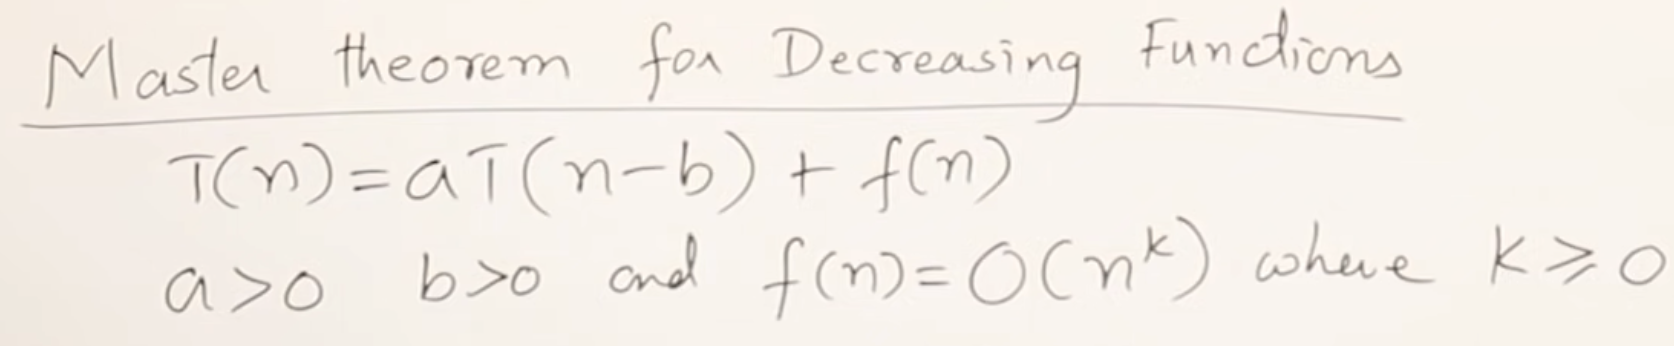 Master theorem for Decreasing Functions
T(n) = aT(n-b) + f(n)
a>0 b>0 and f(n) = O(n^k) where k ≥ 0